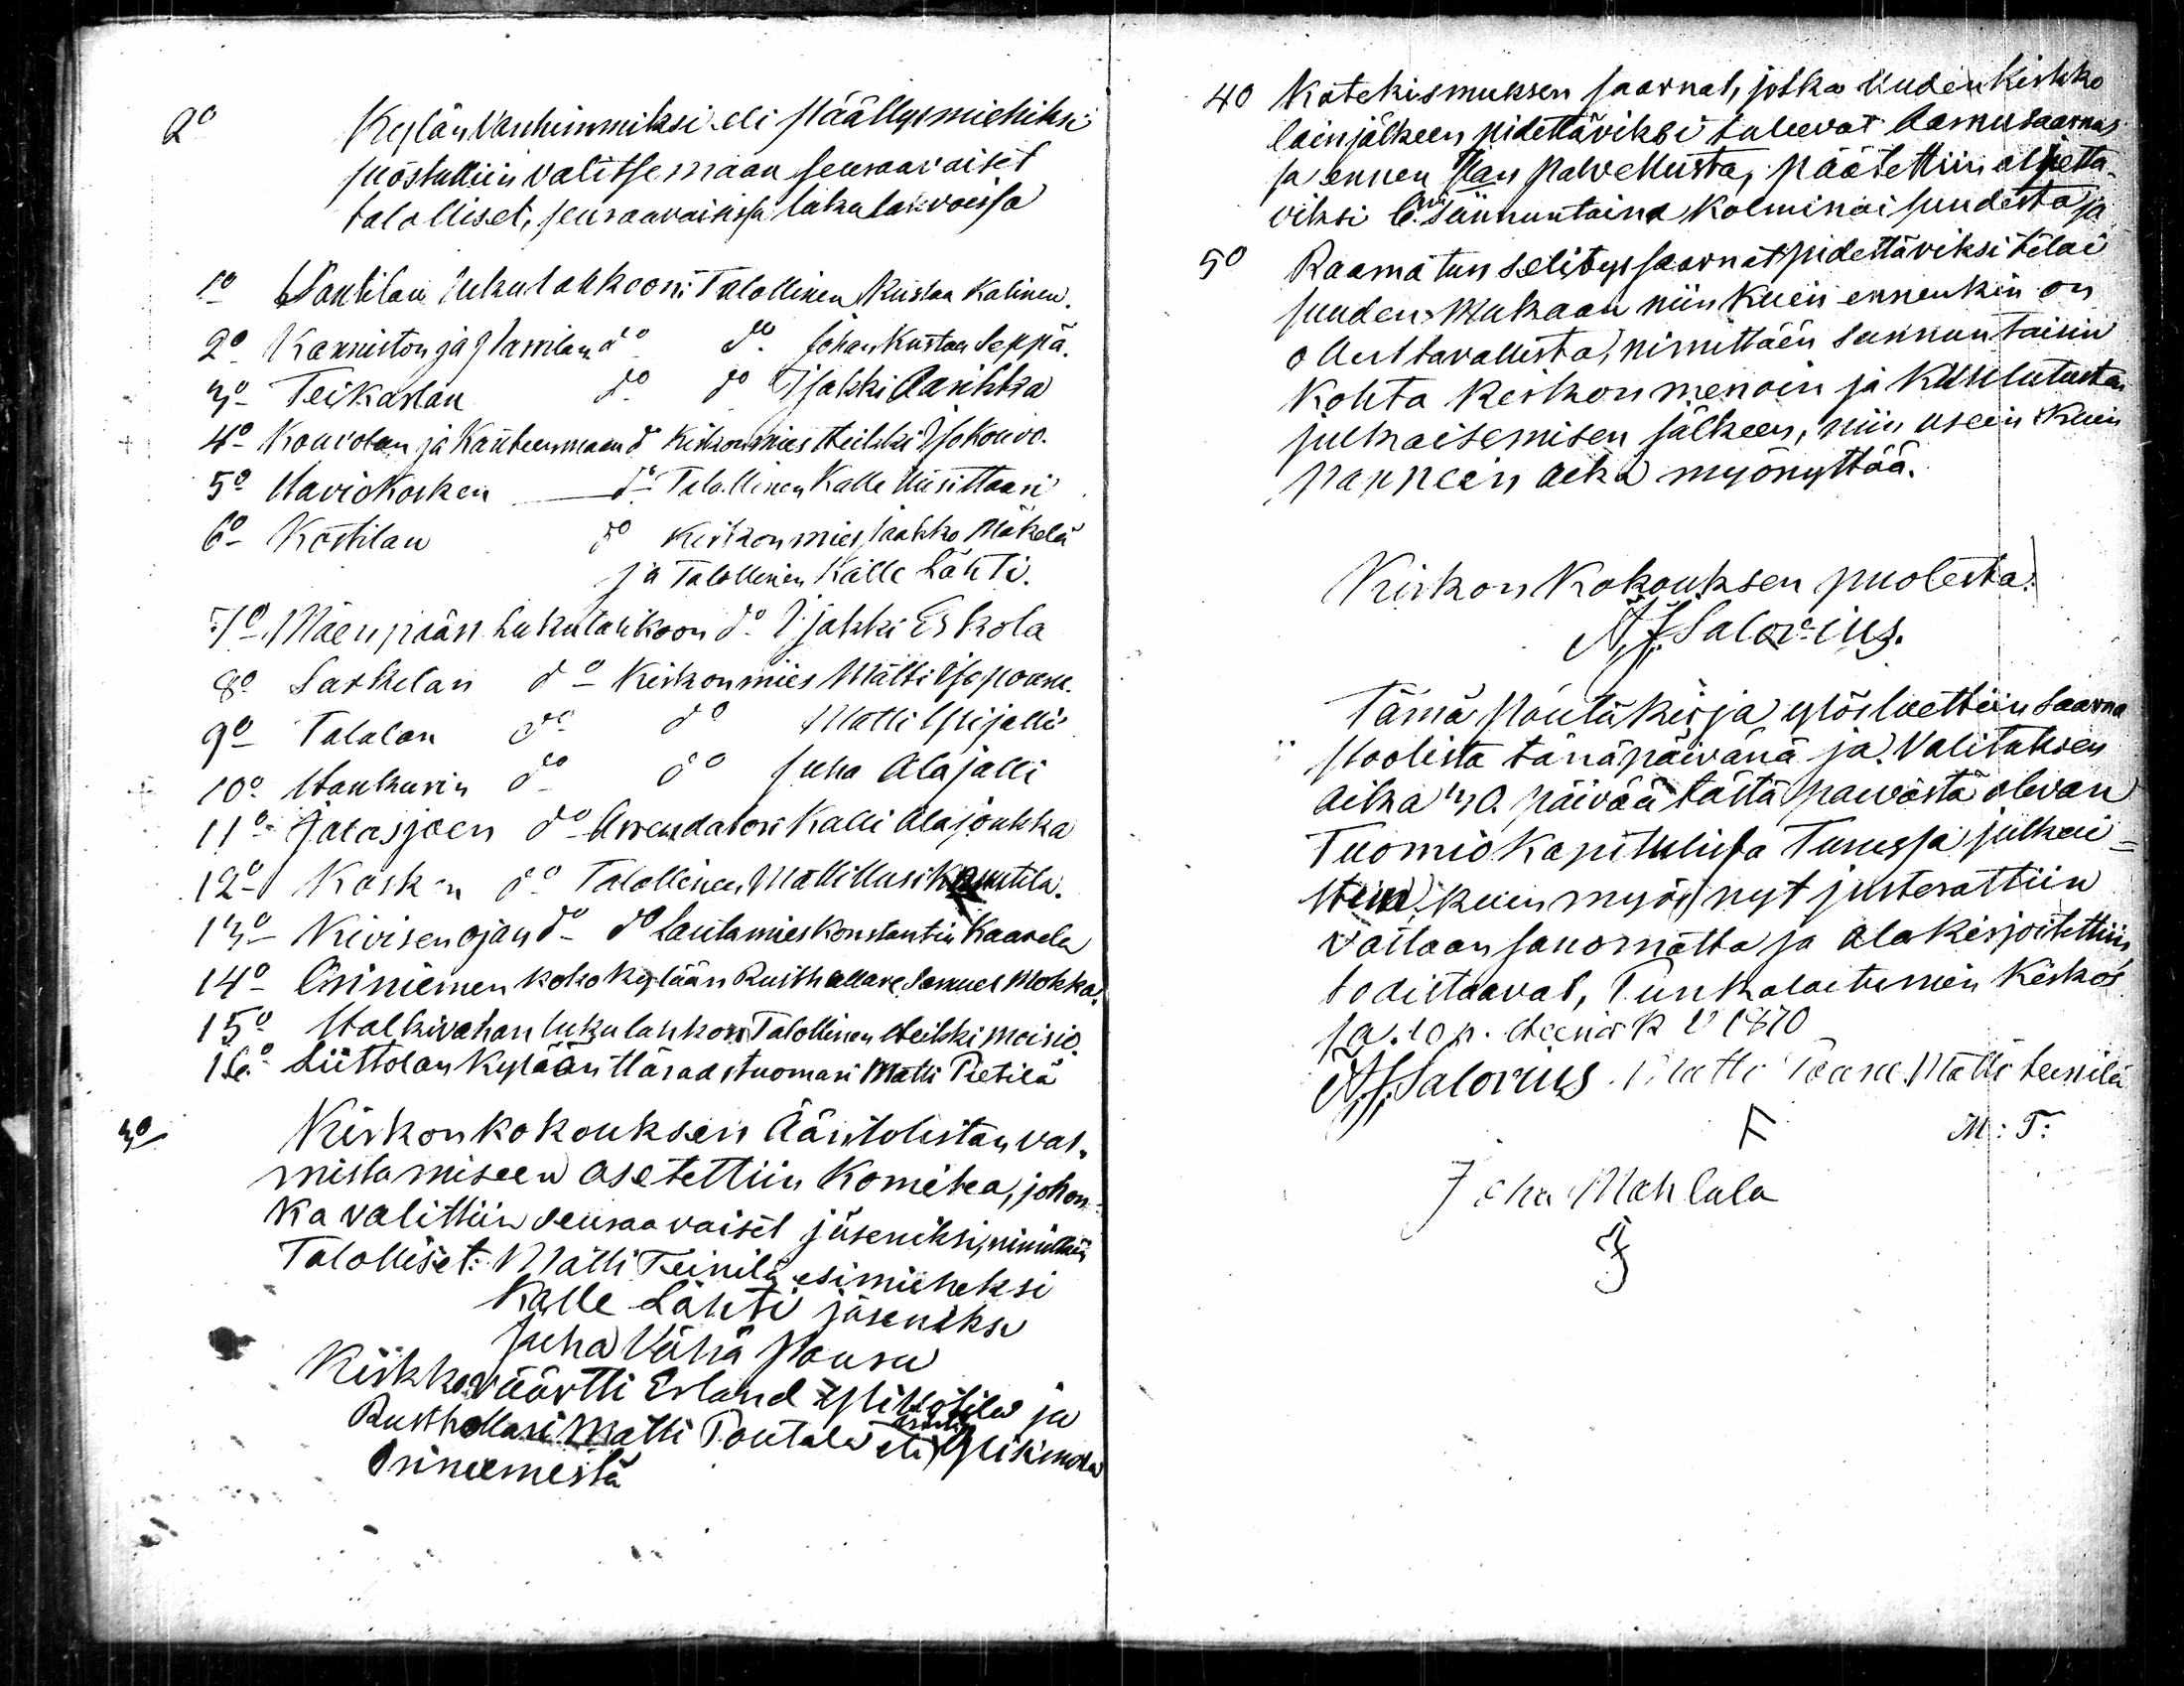 2o Kylän Vanhimmiksi eli päällysmiehiksi
suostuttiin valitsemaan seuraavaiset
talolliset, seuraavaisissa lukulakvoissa
1o Santilan lukulahkoon: Talollinen Kustaa Kalinen.
2o Kanniston ja Harrilan do do. Johan Kustaa Seppä.
3o Teikarlan do do Isakki Aarikka
4o Kourolan ja Kanteenmaan do Kirkonmies Heikki Isokouvo.
5o Haviokosken do Talollinen Kalle Uusittaari
6o Kostilan do Kirkonmies Jaakko Mäkelä
ja Talollinen Kalle Lahti.
7o Mäenpään Lukulahkoon do Isakki Eskola
8o Sarkelan do Kirkonmies Matti Isopouru.
9o Talalan do do Matti Ylijalli
10o Haukurin do do Juha Alajalli
11o Jalasjoen do Arrendatori Kalli Alajoukka
12o Kosken do Talollinen Matti Uusi Kruutila.
13o Kivisenojan do do lautamies Konstantin Kaarela
14o Oriniemen koko kylään Rusthallare Samuel Mokka.
15o Halkivahan lukulahkon Talollinen Heikki Moisio.
16o Liittolan Kylään Häradstuomari Matti Pietilä
3o Kirkonkokouksen Ääntölistan val-
mistamiseen asetettiin Komitea, johon-
ka valittiin seuraavaiset jäseniksi, nimittäin
Talolliset: Matti Teinilä esimieheksi
Kalle Lahti jäseniksi
Juha Vähä Pouru
Kirkkoväärtti Erland Yli Kotila ja
Rusthollari Matti Poutala eli Yliskmola
Oriniemestä
4o Katekismuksen saarnat, jotka Uuden Kirkko
lain jälkeen pidettäviksi tulevat Aamusaarnas
sa ennen Ylän Palvellusta, päätettiin alj​etta-
viksi 6. Sunnuntaina Kolminaisuudesta ja
5o Raamatun selitys saarnat pidettäviksi tilai
suuden mukaan niinkuin ennenkin on
ollut tavallista, nimittäin sunnuntaisin
Kohta Kirkon menoin ja Kuulutusten
julkaisemisen jälkeen, niin usein Kuin
pappein aika myönyttää.
Kirkon Kokouksen puolesta:
A. J. Salovius.
Tämä Pöutäkirja ylösluettiin Saarna
stoolista tänäpäivänä ja Valituksen
aika 30 päivää tästä päivästä olevan
Tuomio Kapitulissa Turussa julkai-
stiin. kuin myös nyt justerattiin
vastaan sanomatta ja alakirjoitettiin
todistaavat, Punkalaitumen Kirkos
sa. 10 p. Heinäk v 1870
A. J. Salovius. Matti Pouru. Matti Teinilä
M: T:
Juha Mahlala